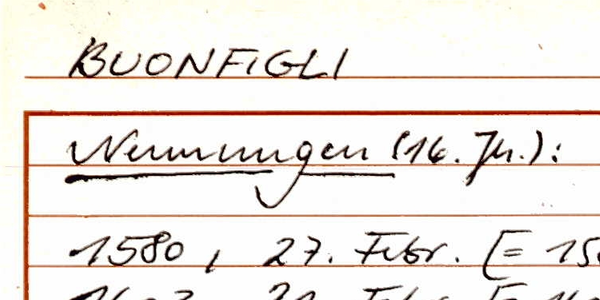 BUONFIGLI
Nennungen (16. Jh.):
1580, 27. Febr. [= 15